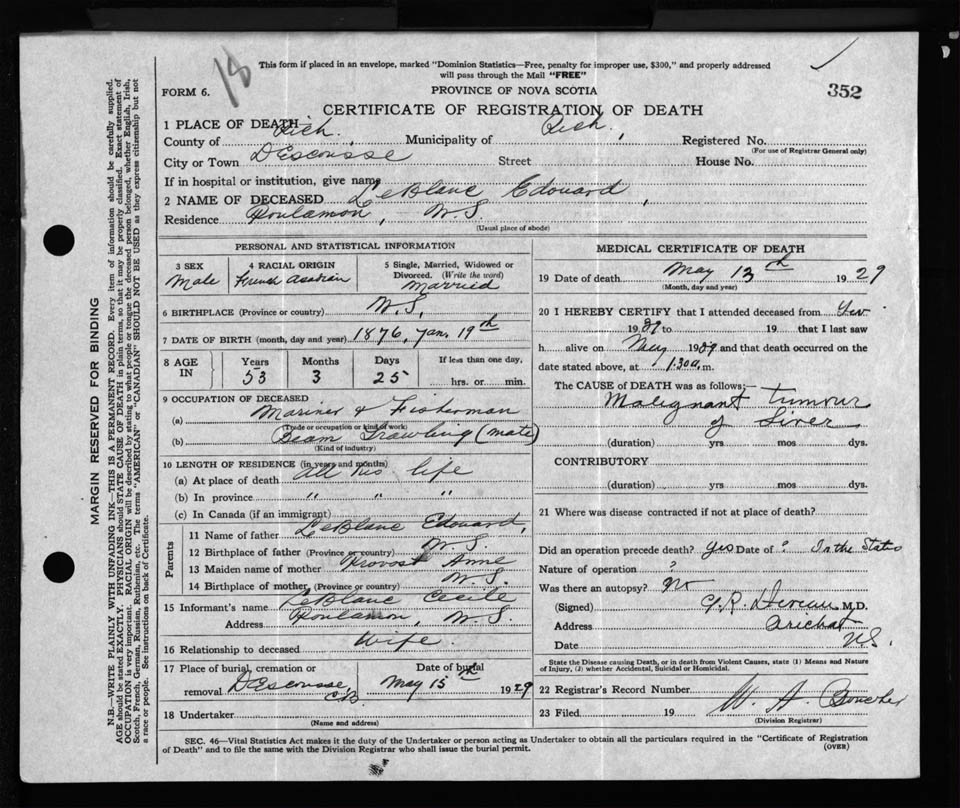 18
This form if placed in an envelope, marked "Dominion Statistics—Free, penalty for improper use, $300," and properly addressed
will pass through the Mail "FREE"
352
FORM 6.
PROVINCE OF NOVA SCOTIA
CERTIFICATE OF REGISTRATION OF DEATH
1 PLACE OF DEATH
County of Rich. Municipality of Rich, Registered No.
(For use of Registrar General only)
City or Town D'Escousse Street House No.
If in hospital or institution, give name
2 NAME OF DECEASED LeBlanc Edouard,
Residence Poulamon, N.S.
(Usual place of abode)
PERSONAL AND STATISTICAL INFORMATION
3 SEX
Male
4 RACIAL ORIGIN
French Acadian
5 Single, Married, Widowed or
Divorced. (Write the word)
Married
6 BIRTHPLACE (Province or country) N.S.
7 DATE OF BIRTH (month, day and year) 1876, Jan. 19th
8 AGE
IN
Years
53
Months
3
Days
25
If less than one day,
hrs. or min.
9 OCCUPATION OF DECEASED
(a) Mariner & Fisherman
(Trade or occupation or kind of work)
(b) Beam Trawling (mate)
(Kind of industry)
10 LENGTH OF RESIDENCE (in years and months)
(a) At place of death all his life
(b) In province " " "
(c) In Canada (if an immigrant)
Parents
11 Name of father LeBlanc Edouard,
12 Birthplace of father (Province or country) N.S.
13 Maiden name of mother Provost Anne
14 Birthplace of mother (Province or country) N.S.
15 Informant's name LeBlanc Cecile
Address Poulamon, N.S.
16 Relationship to deceased Wife.
17 Place of burial, cremation or
removal D'Escousse, C.B.
Date of burial
May 15th 1929
18 Undertaker
(Name and address)
MEDICAL CERTIFICATE OF DEATH
19 Date of death May 13th 1929
(Month, day and year)
20 I HEREBY CERTIFY that I attended deceased from
1929 to 19 that I last saw
h alive on May 1929 and that death occurred on the
date stated above, at 1.30 a. m.
The CAUSE OF DEATH was as follows;—
Malignant tumour
of Liver
(duration) yrs mos dys.
CONTRIBUTORY
(duration) yrs mos dys.
21 Where was disease contracted if not at place of death?
Did an operation precede death? yes Date of ? In the States
Nature of operation ?
Was there an autopsy? No
(Signed) G.R. M.D.
Address Arichat
Date N.S.
State the Disease causing Death, or in death from Violent Causes, state (1) Means and Nature
of Injury, (2) whether Accidental, Suicidal or Homicidal.
22 Registrar's Record Number
23 Filed 19 W. A. Boucher
(Division Registrar)
SEC. 46—Vital Statistics Act makes it duty of the Undertaker or person acting as Undertaker to obtain all the particulars required in the "Certificate of Registration
of Death" and to file the same with the Division Registrar who shall issue the burial permit.
(OVER)
MARGIN RESERVED FOR BINDING
N.B.—WRITE PLAINLY WITH UNFADING INK—THIS IS A PERMANENT RECORD. Every item of information should be carefully supplied.
AGE should be stated EXACTLY. PHYSICIANS should STATE CAUSE OF DEATH in plain terms, so that it may be properly classified. Exact statement of
OCCUPATION is very important. RACIAL ORIGIN will be described by stating to what people or tongue the deceased person belonged, whether English, Irish,
Scotch, French, German, Russian, Ruthenian, etc. The terms "AMERICAN" or "CANADIAN" SHOULD NOT BE USED as they express citizenship but not
a race or people. See instructions on back of Certificate.